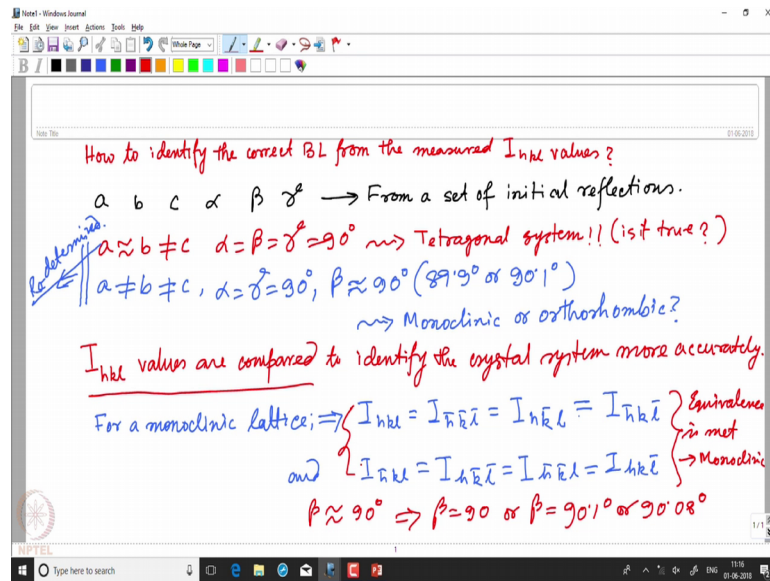 Note1 - Windows Journal
File Edit View Insert Actions Tools Help
Whole Page
B I
Note Title
01-06-2018
How to identify the correct BL from the measured I hkl values?
a b c α β γ → From a set of initial reflections.
Re determined.
a ≈ b ≠ c α = β = γ = 90° ⇝ Tetragonal system!! (is it true?)
a ≠ b ≠ c, α = γ = 90°, β ≈ 90° (89.9° or 90.1°)
⇝ Monoclinic or orthorhombic?
I hkl values are compared to identify the crystal system more accurately.
For a monoclinic lattice; ⇒ { I hkl = I h̄k̄l̄ = I hk̄l = I h̄kl̄ } Equivalence is met
and I h̄kl = I hk̄l̄ = I h̄k̄l = I hkl̄ → Monoclinic
β ≈ 90° ⇒ β = 90 or β = 90.1° or 90.08°
1/1
NPTEL
1
Type here to search
ENG
11:16
01-06-2018